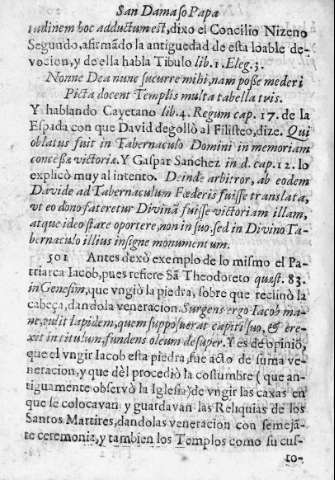 San Damaso Papa
tudinem hoc adductum est, dixo el Concilio Nizeno
Segundo, afirmãdo la antiguedad de esta loable de-
vocion, y de ella habla Tibulo lib. 1. Eleg. 3.
Nonne Dea nunc sucurre mihi, nam posse mederi
Picta docent Templis multa tabella tvis.
Y hablando Cayetano lib. 4. Regum cap. 17. de la
Espada con que David degollò al Filisteo, dize. Qui
oblatus fuit in Tabernaculo Domini in memoriam
concessa victoria. Y Gaspar Sanchez in d. cap. 12. lo
explicò muy al intento. Deinde arbitror, ab eodem
Davide ad Tabernaculum Fœderis fuisse translata,
vt eo dono fateretur Divinã fuisse victoriam illam,
atque ideo stare oportere, non in suo, sed in Divino Ta-
bernaculo illius insigne monumentum.
501 Antes dexò exemplo de lo mismo el Pa-
triarca Iacob, pues refiere Sã Theodoreto quæst. 83.
in Genesim, que vngiò la piedra, sobre que reclinò la
cabeça, dandola veneracion. Surgens ergo Iacob ma-
ne, tulit lapidem, quem supposuerat capiti suo, & ere-
xit in titulum, fundens oleum desuper. Y es de opiniõ,
que el vngir Iacob esta piedra, fue acto de suma ve-
neracion, y que dèl procediò la costumbre (que an-
tiguamente observò la Iglesia) de vngir las caxas en
que se colocavan y guardavan las Reliquias de los
Santos Martires, dandolas veneracion con semejã-
te ceremonia, y tambien los Templos como su cus-
to-